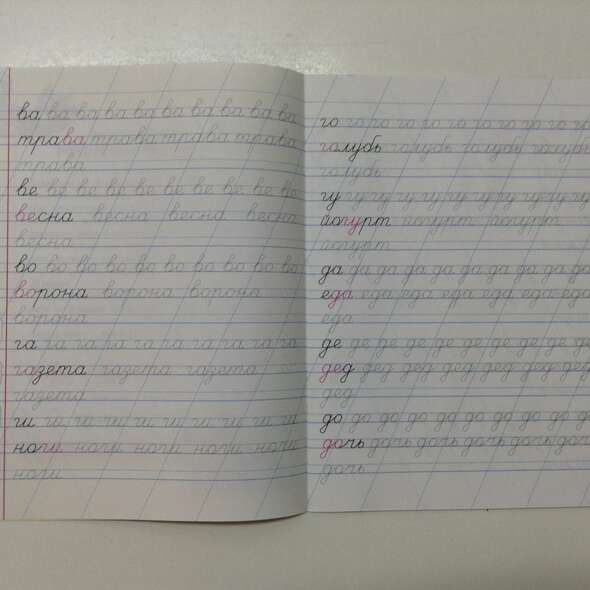 ва ва ва ва ва ва ва ва ва ва
трава трава трава трава
трава
ве ве ве ве ве ве ве ве ве ве
весна весна весна весна
весна
во во во во во во во во во во
ворона ворона ворона
ворона
га га га га га га га га га га
газета газета газета
газета
ги ги ги ги ги ги ги ги ги ги
ноги ноги ноги ноги ноги
ноги
го го го го го го го го го го
голубь голубь голубь голубь
голубь
гу гу гу гу гу гу гу гу гу гу
йогурт йогурт йогурт
йогурт
да да да да да да да да да да
еда еда еда еда еда еда еда
еда
де де де де де де де де де де
дед дед дед дед дед дед дед
дед
до до до до до до до до до до
дочь дочь дочь дочь дочь дочь
дочь